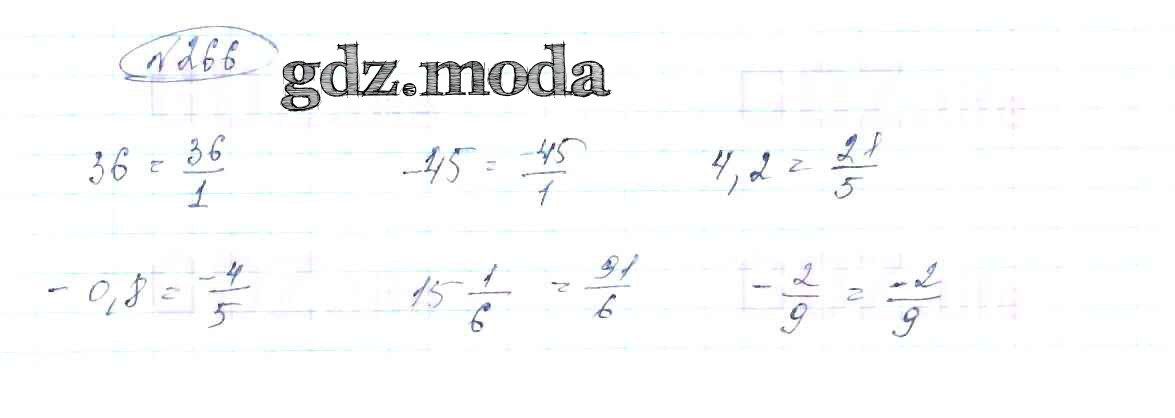 №266
gdz.moda
36 = 36/1   -45 = -45/1   4,2 = 21/5
-0,8 = -4/5   15 1/6 = 91/6   -2/9 = -2/9